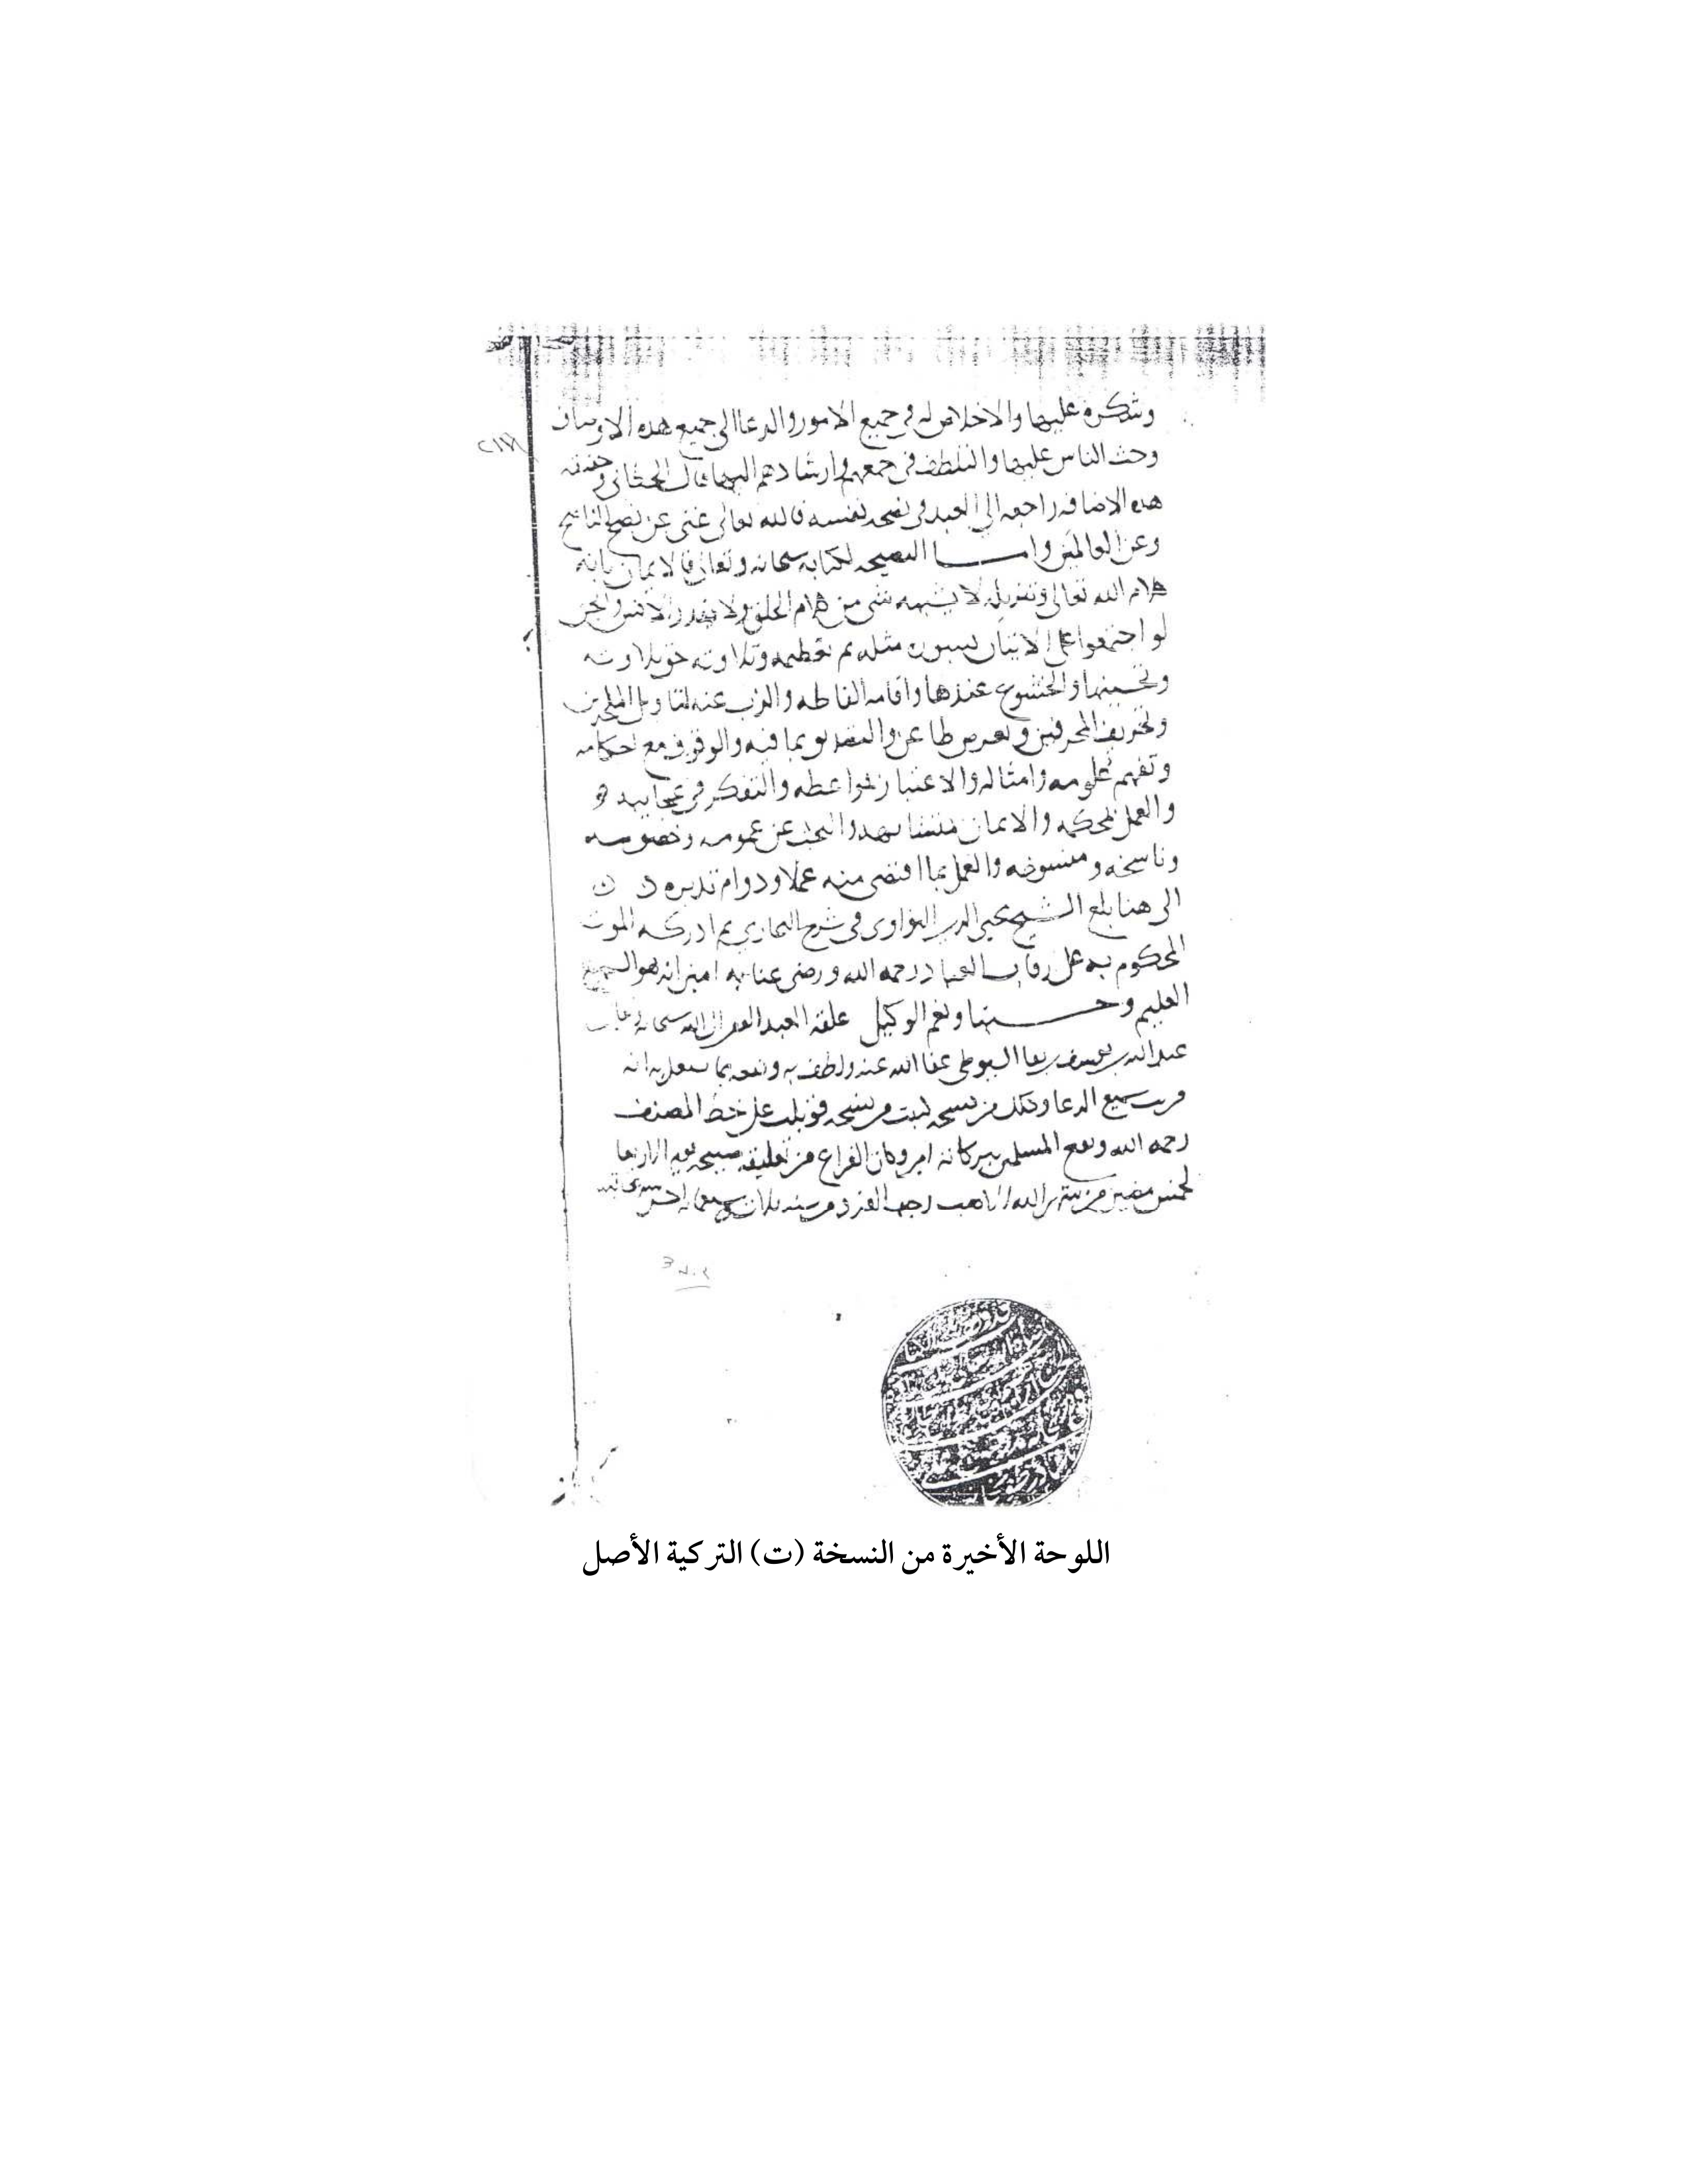 وشكره عليها والاخلاص له في جميع الامور والدعا الى جميع هذه الاوصاف
وحث الناس عليها والتلطف في جمعهم وارشادهم اليها قال الخطابي وحقيقة
هذه الاضافه راجعه الى العبد في نصحه نفسه فالله تعالى غني عن نصح الناصح
وعن العالمين واما النصيحه لكتابه سبحانه وتعالى فالايمان بانه
كلام الله تعالى وتنزيله لا يشبهه شي من كلام الخلق ولا يقدر الانس والجن
لو اجتمعوا على الاتيان بسوره مثله ثم تعظيمه وتلاوته حق تلاوته
وتحسينها والخشوع عندها واقامه الفاظه والذب عنه لتاويل الملحدين
وتحريف المحرفين وتعرض طاعن والتصديق بما فيه والوقوف مع احكامه
وتفهم علومه وامثاله والاعتبار بمواعظه والتفكر في عجايبه
والعمل بمحكمه والايمان بمتشابهه والبحث عن عمومه وخصوصه
وناسخه ومنسوخه والعمل بما اقتضى منه عملا ودوام تدبره
الى هنا بلغ الشيخ محيي الدين النواوي في شرح البخاري ثم ادركه الموت
المحكوم به على رقاب العباد رحمه الله ورضي عنا به امين انه هو السميع
العليم وحسبنا ونعم الوكيل علقه العبد الفقير الى الله سبحانه
عبد الله بن يوسف عفا الله عنه ولطف به ونفعه بما انه
قريب سميع الدعا وذلك من نسخه كتبت من نسخه قوبلت على خط المصنف
رحمه الله ونفع المسلمين ببركاته امين وكان الفراغ من تعليقه صبيحه يوم الاربعا
لخمس مضين من شهر الله الاصب رجب الفرد من سنه
اللوحة الأخيرة من النسخة (ت) التركية الأصل